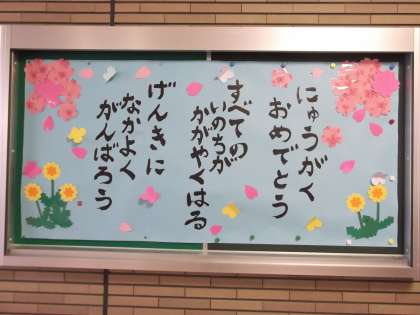 にゅうがく
おめでとう
すべての
いのちが
かがやくはる
げんきに
なかよく
がんばろう